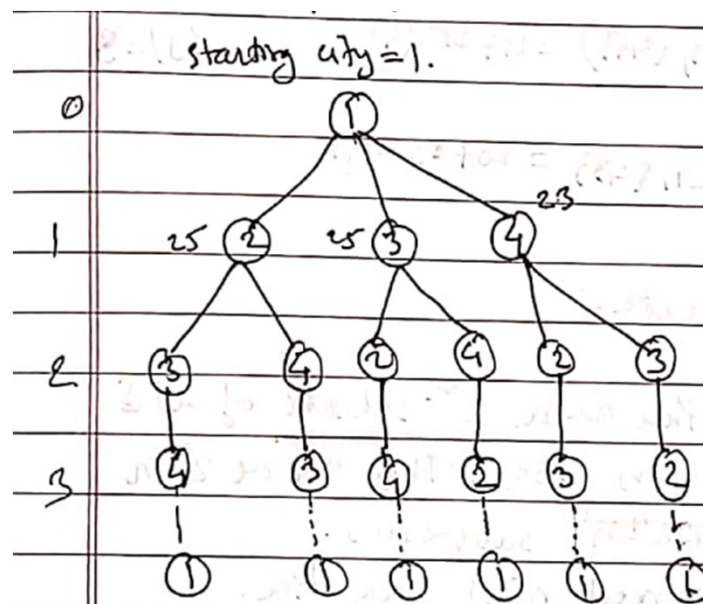 starting city = 1.
0 1
23
1 25 2 25 3 4
2 3 4 2 4 2 3
3 4 3 4 2 3 2
1 1 1 1 1 1